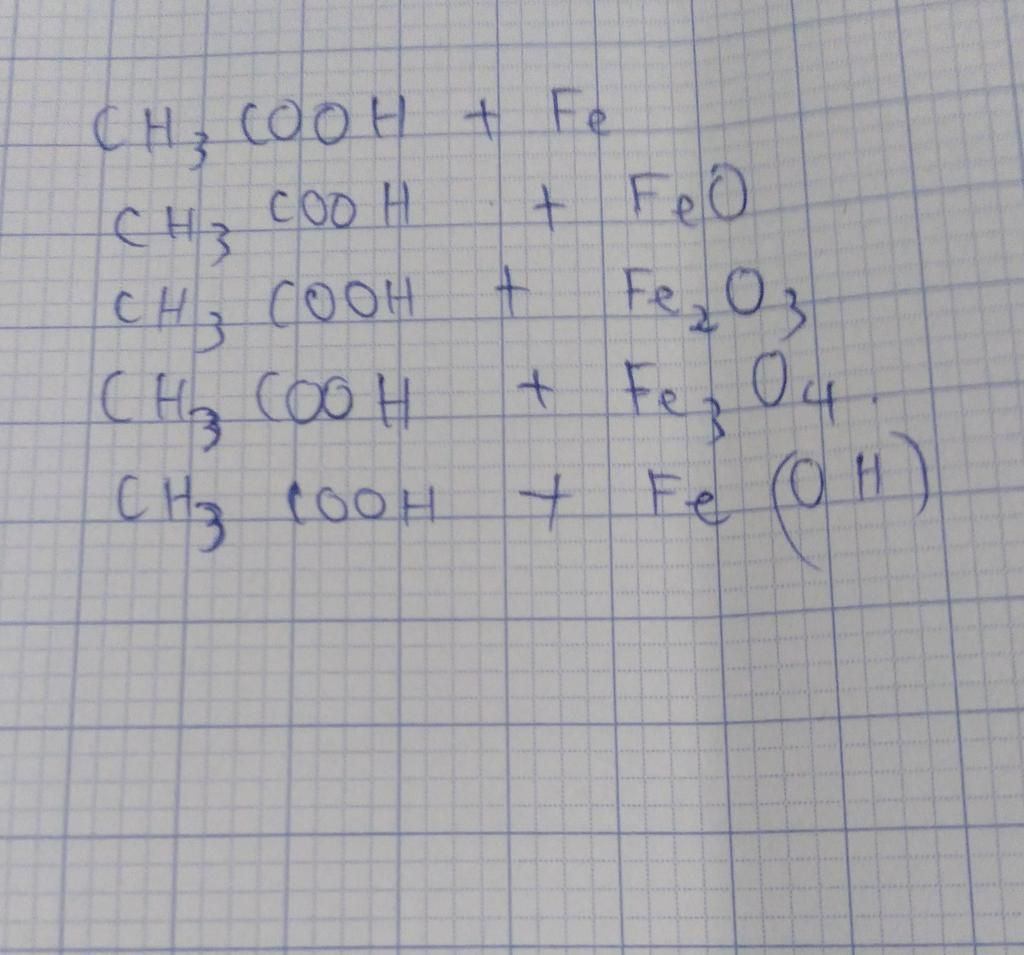 CH₃COOH + Fe
CH₃COOH + FeO
CH₃COOH + Fe₂O₃
CH₃COOH + Fe₃O₄.
CH₃COOH + Fe(OH)